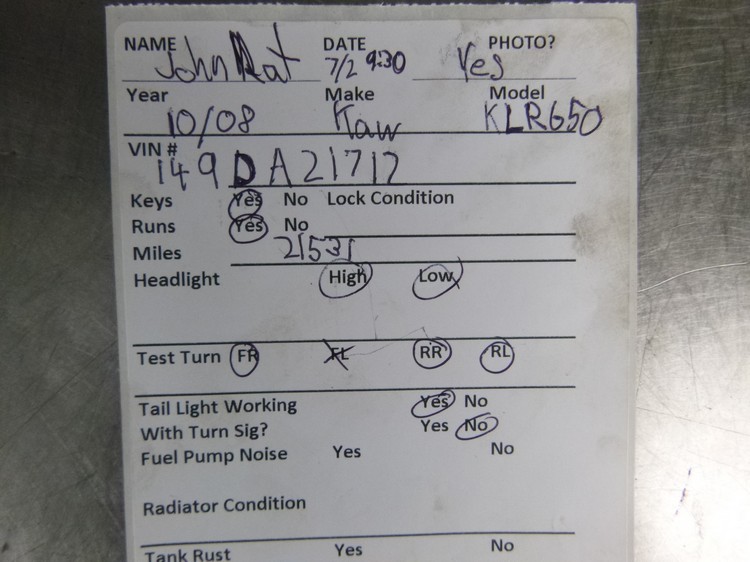 NAME John Rat DATE 7/2 9:30 PHOTO? Yes
Year 10/08 Make Kaw Model KLR650
VIN # 149DA21717
Keys Yes No Lock Condition
Runs Yes No
Miles 21531
Headlight High Low
Test Turn FR FL RR RL
Tail Light Working Yes No
With Turn Sig? Yes No
Fuel Pump Noise Yes No
Radiator Condition
Tank Rust Yes No